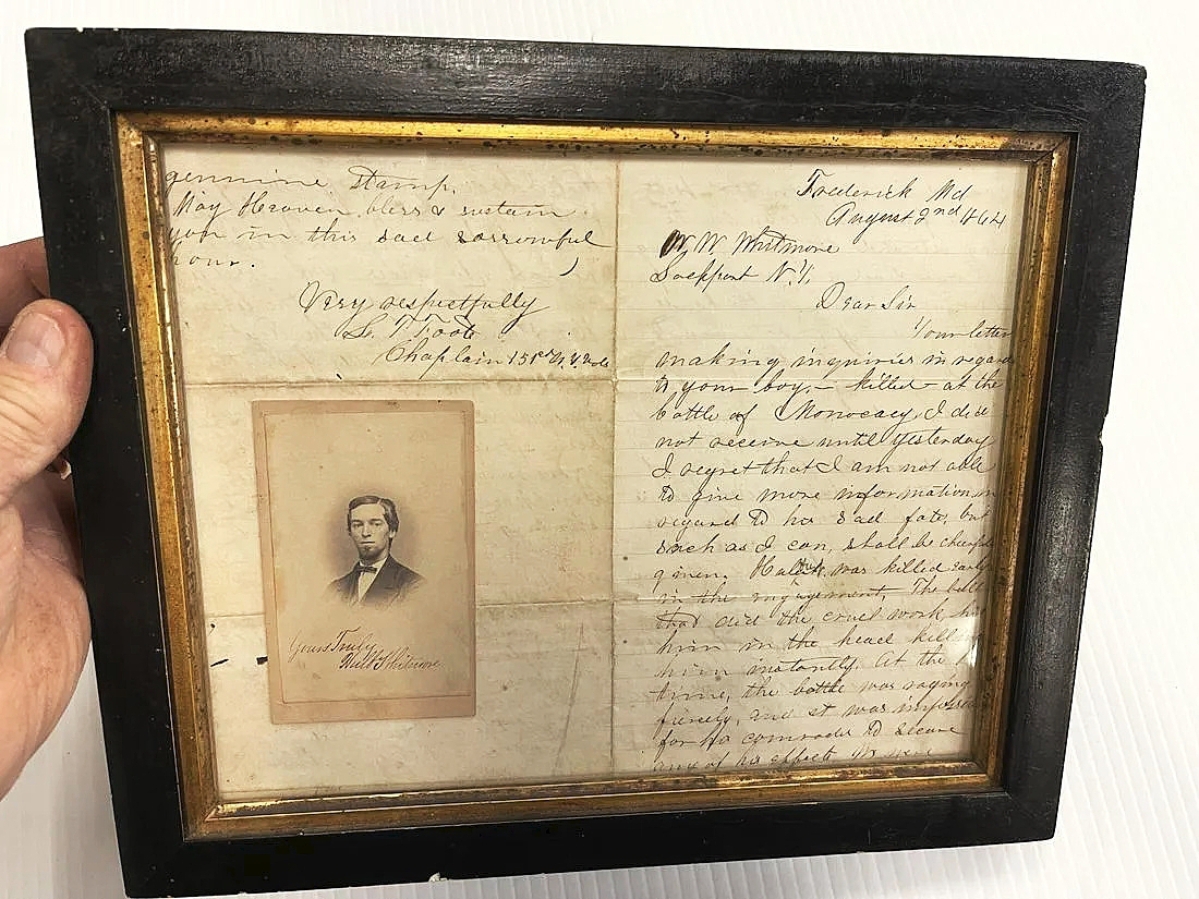 genuine stamp.
May Heaven bless & sustain
you in this sad sorrowful
hour.
Very respectfully
Chaplain 151st N.Y. Vols
Yours Truly
Will Whitmore
Frederick Md
August 2nd 1864
W. W. Whitmore
Lockport N.Y.
Dear Sir
Your letter
making inquiries in regard
to your boy, - killed - at the
battle of Monocacy, I did
not receive until yesterday
I regret that I am not able
to give more information in
regard to his sad fate, but
such as I can, shall be
given. was killed early
in the engagement The
that did the cruel work,
him in the head
him instantly. At the
time, the battle was raging
fiercely, and it was
for his comrades to secure
any of his effects